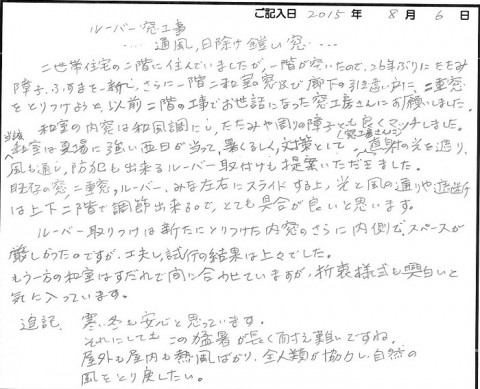 ご記入日 2015年 8月 6日
ルーバー窓工事
… 通風,日除け鎧い窓 …
二世帯住宅の二階に住んでいましたが,一階が空いたので,26年ぶりにたたみ
障子,ふすまを一新し,さらに一階二和室の窓及び廊下の引き違い戸に,二重窓
をとりつけようと,以前二階の工事でお世話になった窓工房さんにお願いしました。
和室の内窓は和風調にし,たたみや周りの障子とも良くマッチしました。
当該和室は真場に強い西日が当って,暑くるしく,対策として,窓工房さんに直射の光を遮り,
風も通し,防犯も出来るルーバー取付けも提案いただきました。
既存の窓,二重窓,ルーバー,みな左右にスライドする上,光と風の通りや遮断
は上下,二階で調節出来るので,とても具合が良いと思います。
ルーバー取りつけは新たにとりつけた内窓のさらに内側で,スペースが
厳しかったのですが,工夫し,試行の結果は上々でした。
もう一方の和室はすだれで間に合わせていますが,折衷様式も面白いと
気に入っています。
追記 寒い冬も安心と思っています。
それにしてもこの猛暑が長く耐え難いですね。
屋外も屋内も熱風ばかり,全人類が協力し自然の
風をとり戻したい。